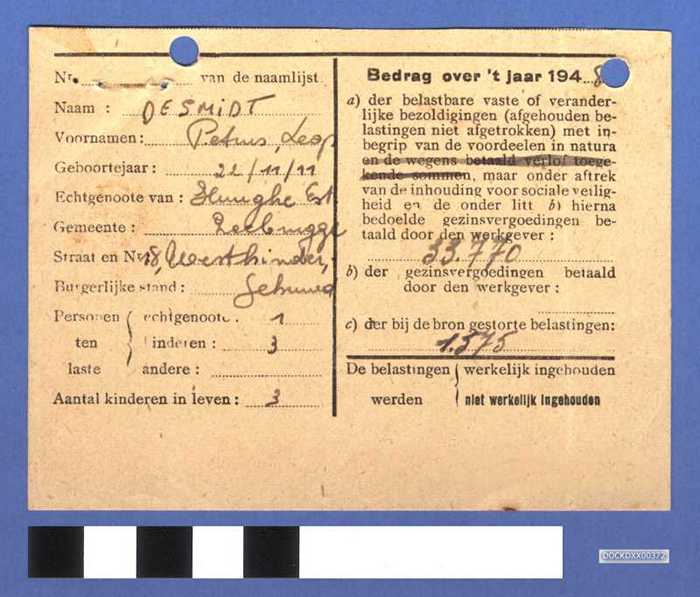 Nr. van de naamlijst
Naam : DESMIDT
Voornamen : Petrus, Leop
Geboortejaar : 22/11/11
Echtgenote van : Est
Gemeente : Zeebrugge
Straat en Nr. 18, Westhinder,
Burgerlijke stand : Gehuwd
Personen echtgenoote : 1
ten kinderen : 3
laste andere :
Aantal kinderen in leven : 3
Bedrag over 't jaar 1948
a) der belastbare vaste of verander-
lijke bezoldigingen (afgehouden be-
lastingen niet afgetrokken) met in-
begrip van de voordeelen in natura
en de wegens betaald verlof toege-
kende sommen, maar onder aftrek
van de inhouding voor sociale veilig-
heid en de onder litt b) hierna
bedoelde gezinsvergoedingen be-
taald door den werkgever :
33.770
b) der gezinsvergoedingen betaald
door den werkgever :
c) der bij de bron gestorte belastingen:
1.575
De belastingen werkelijk ingehouden
werden niet werkelijk ingehouden
DOCKDXX00372